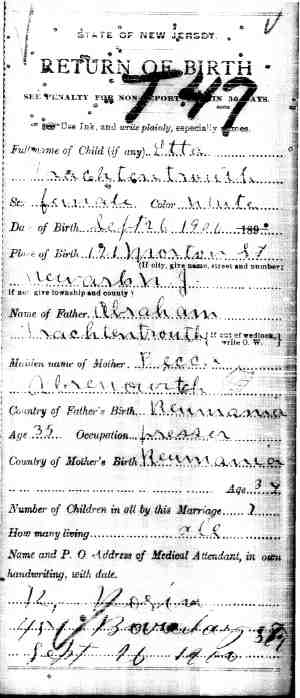 STATE OF NEW JERSEY.
RETURN OF BIRTH
T47
SEE PENALTY FOR NON-REPORT WITHIN 30 DAYS.
Use Ink, and write plainly, especially names.
Full name of Child (if any) Etta
Trachtentrouth
Se female Color White
Da of Birth Sept 6 1900 189
Place of Birth 191 Morton St
(If city, give name, street and number;
Newark N J
if not give township and county)
Name of Father Abraham
Trachtentrouth (If out of wedlock, write O. W.)
Maiden name of Mother
Country of Father's Birth Reumania
Age 35 Occupation presser
Country of Mother's Birth Reumania
Age 34
Number of Children in all by this Marriage
How many living all
Name and P. O. Address of Medical Attendant, in own
handwriting, with date.
Sept 16